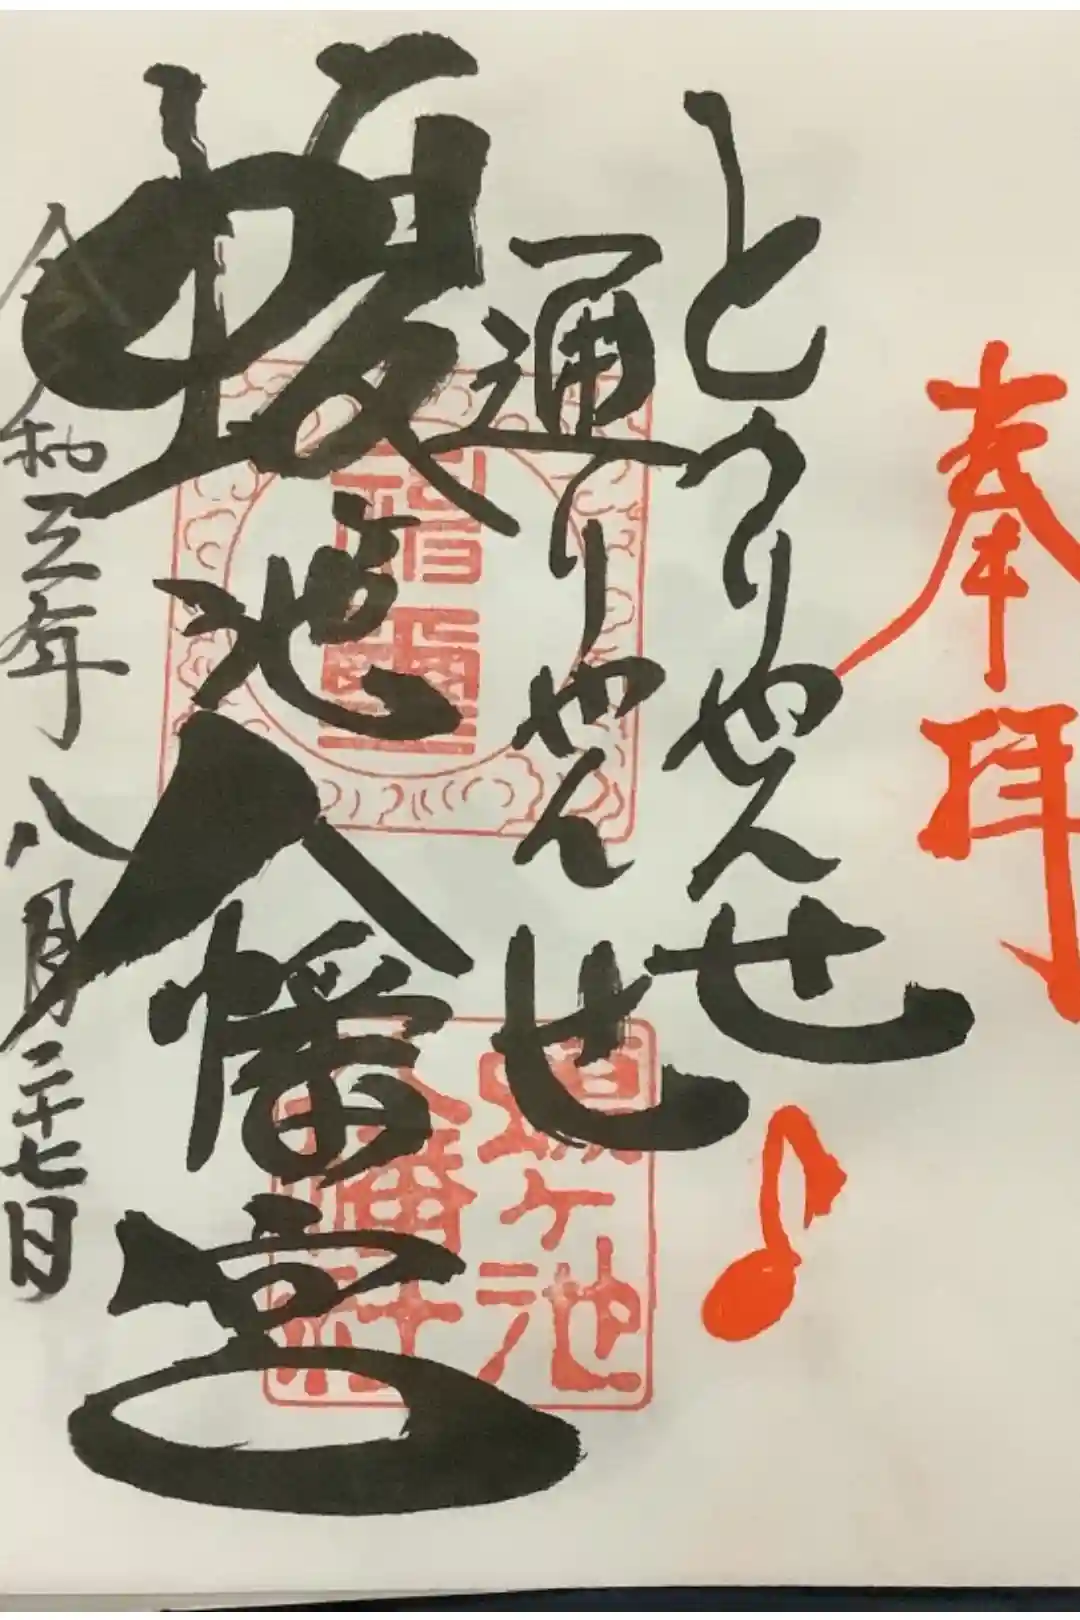 奉拝
とうりゃんせ
通りゃんせ
蝮ヶ池八幡宮
令和三年八月二十七日
蝮ヶ池
八幡社